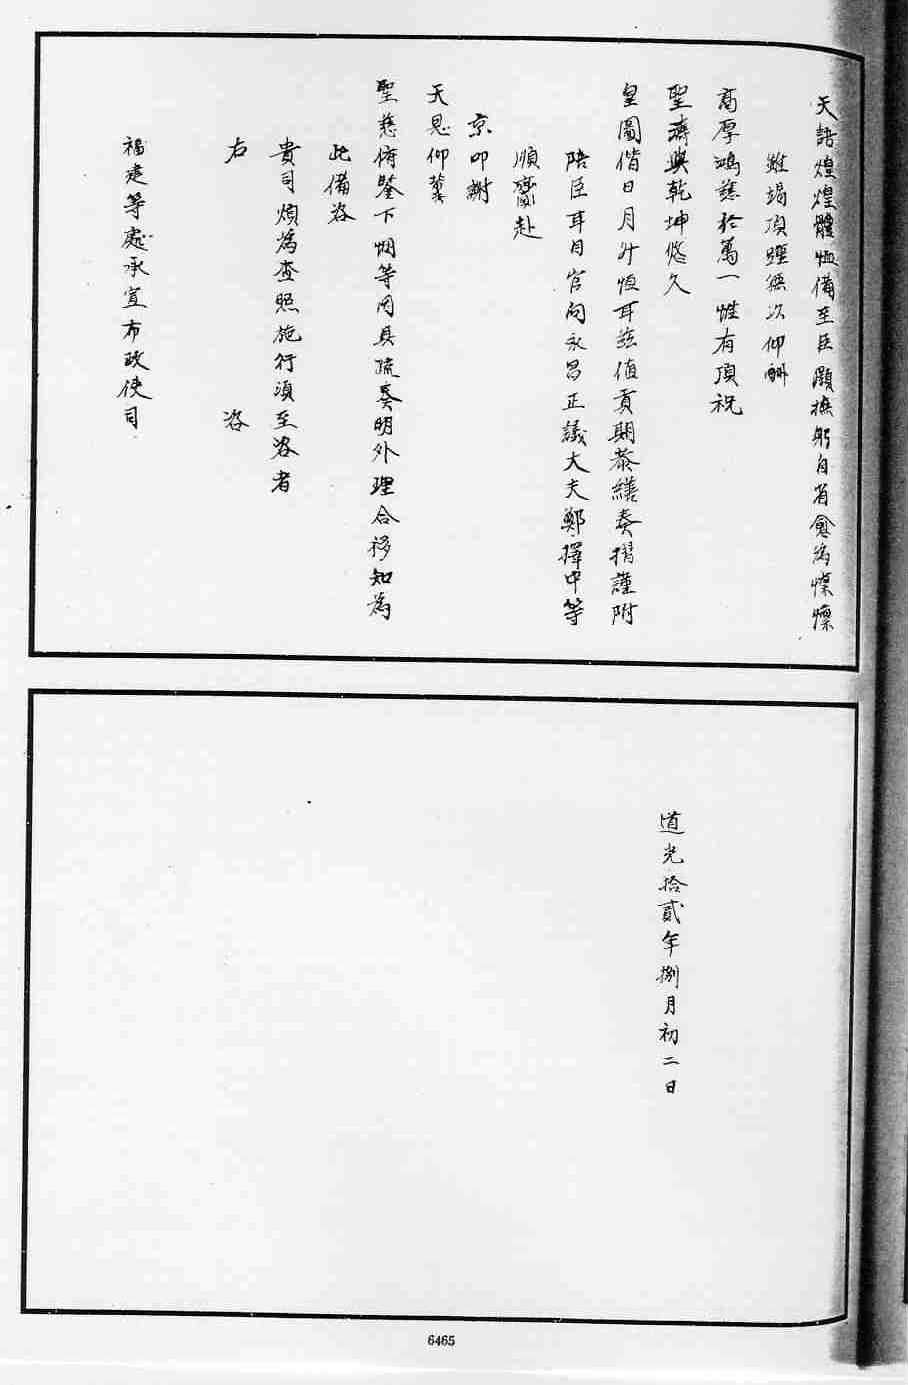 天語煌煌體恤備至臣灝撫躬自省愈為慄慄
雖竭頂踵無以仰酬
高厚鴻慈於萬一惟有頂祝
聖壽與乾坤悠久
皇圖偕日月升恆耳茲值貢期恭繕奏摺謹附
陪臣耳目官向永昌正議大夫鄭擇中等
順齎赴
京叩謝
天恩仰冀
聖慈俯鑒下悃等因具疏奏明外理合移知為
此備咨
貴司煩為查照施行須至咨者
右 咨
福建等處承宣布政使司
道光拾貳年捌月初二日
6465